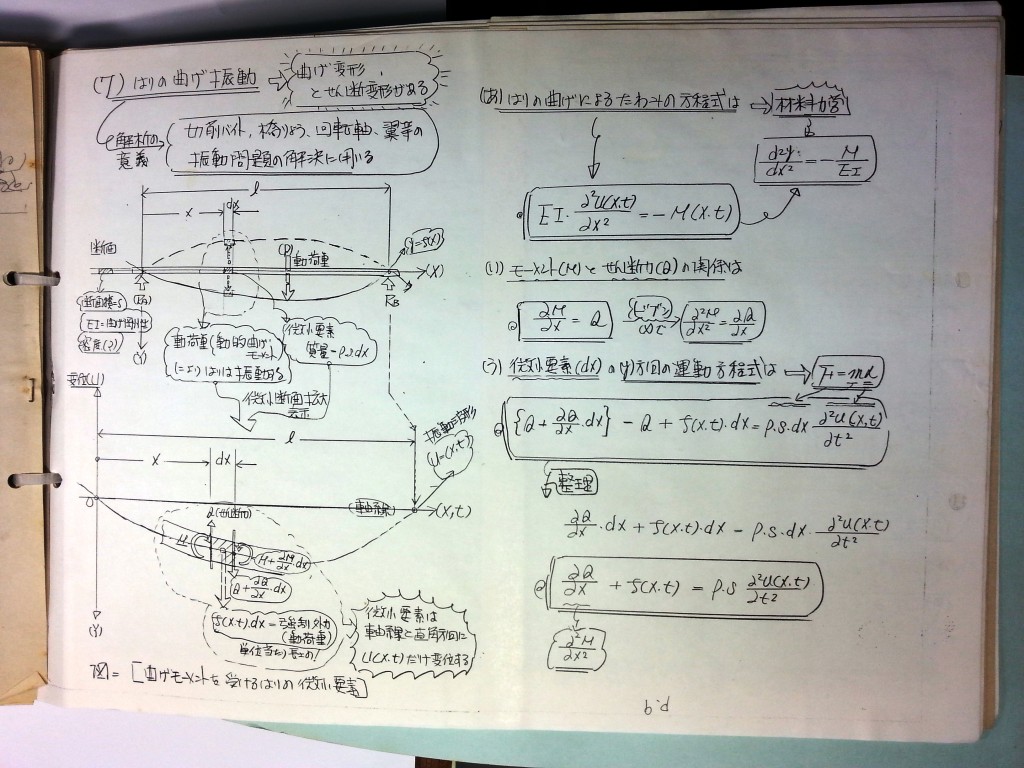 (7) はりの曲げ振動
曲げ変形、
とせん断変形がある
解析の
意義
切削バイト、橋りょう、回転軸、翼等の
振動問題の解決に用いる
l
x
dx
断面
(P)
動荷重
y=f(x)
(X)
断面積=S
EI=曲げ剛性
密度(ρ)
(Y)
RB
動荷重(動的曲げ
モーメント)
によりはりは振動する
微小要素
質量=ρ.s.dx
微小断面拡大
表示
変位(U)
l
x
dx
振動方形
U=(x,t)
0
軸線
(x,t)
Q(せん断力)
M
M+∂M/∂x dx
Q+∂Q/∂x.dx
f(x.t).dx=強制外力
(動荷重)
単位当たり長さの!
(Y)
微小要素は
軸線と直角方向に
U(x.t)だけ変位する
図=[曲げモーメントを受けるはりの微小要素]
(あ) はりの曲げによるたわみの方程式は
材料力学
d²y/dx² = - M/EI
EI・∂²U(x.t)/∂x² = - M(x.t)
(い) モーメント(M)とせん断力(Q)の関係は
∂M/∂x = Q
∂²M/∂x² = ∂Q/∂x
(う) 微小要素(dx)のy方向の運動方程式は
F=mα
{Q+∂Q/∂x.dx} - Q + f(x.t).dx = ρ.s.dx ∂²U(x,t)/∂t²
整理
∂Q/∂x.dx + f(x.t).dx - ρ.s.dx.∂²U(x.t)/∂t²
∂Q/∂x + f(x.t) = ρ.s ∂²U(x.t)/∂t²
∂²M/∂x²
p.9